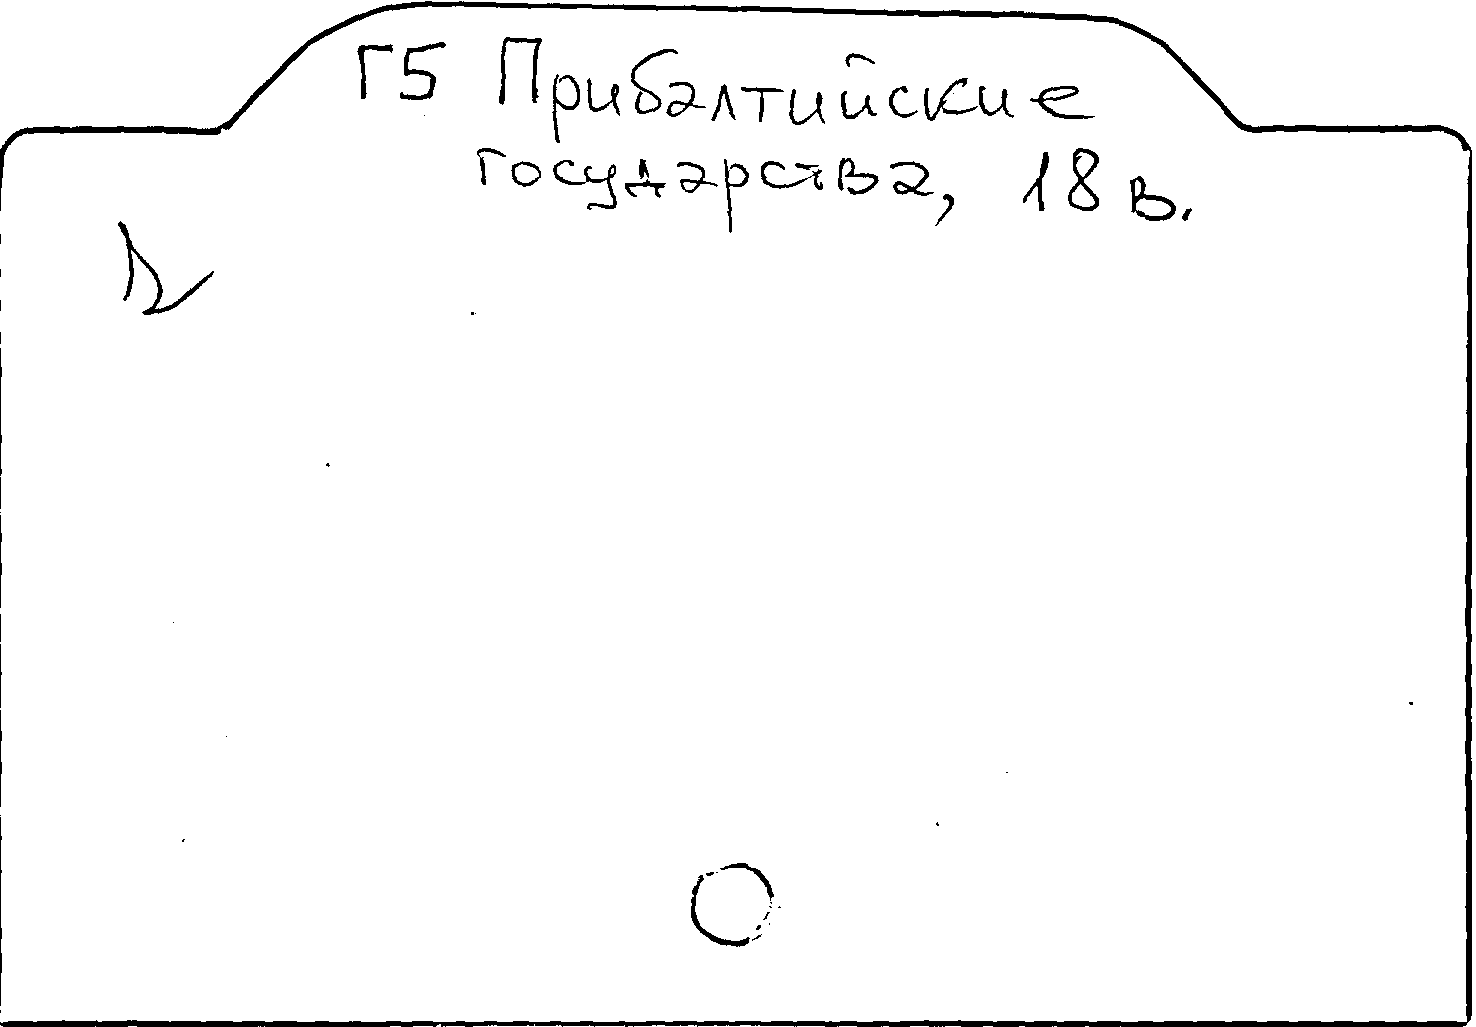 Г5 Прибалтийские
государства, 18 в.